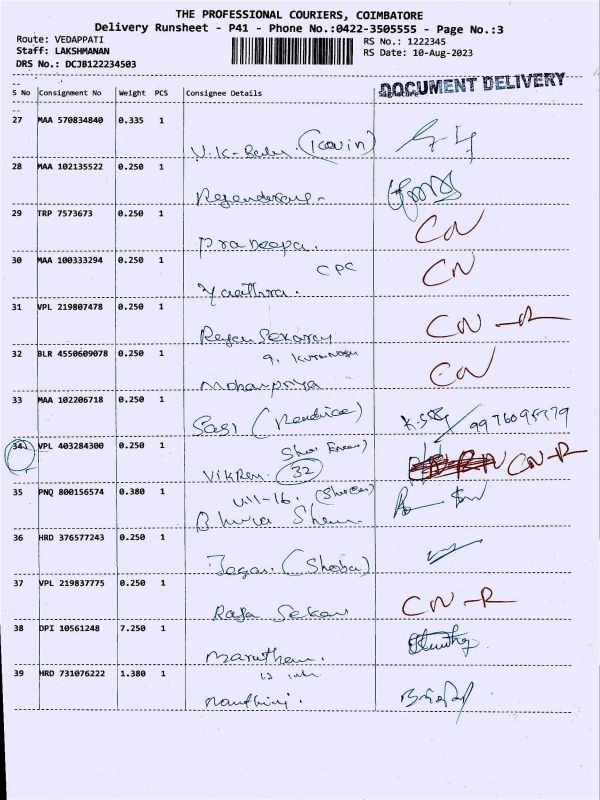 THE PROFESSIONAL COURIERS, COIMBATORE
Delivery Runsheet - P41 - Phone No.:0422-3505555 - Page No.:3
Route: VEDAPPATI
Staff: LAKSHMANAN
DRS No.: DCJB122234503
RS No.: 1222345
RS Date: 10-Aug-2023
DOCUMENT DELIVERY
S No Consignment No Weight PCS Consignee Details Signature
27 MAA 570834840 0.335 1
V.K-Balu (Kavin)
28 MAA 102135522 0.250 1
29 TRP 7573673 0.250 1
Pradeepa. CN
30 MAA 100333294 0.250 1
CPC CN
Yaathra.
31 VPL 219807478 0.250 1
CN-R
Rajan Sekaran
32 BLR 4550609078 0.250 1
CN
Mohanpriya
33 MAA 102206718 0.250 1
Sasi
34 VPL 403284300 0.250 1
Vikram 32 CN-R
35 PNQ 800156574 0.380 1
36 HRD 376577243 0.250 1
Jagan (Shoba)
37 VPL 219837775 0.250 1
Raja Sekar CN-R
38 DPI 10561248 7.250 1
39 HRD 731076222 1.380 1